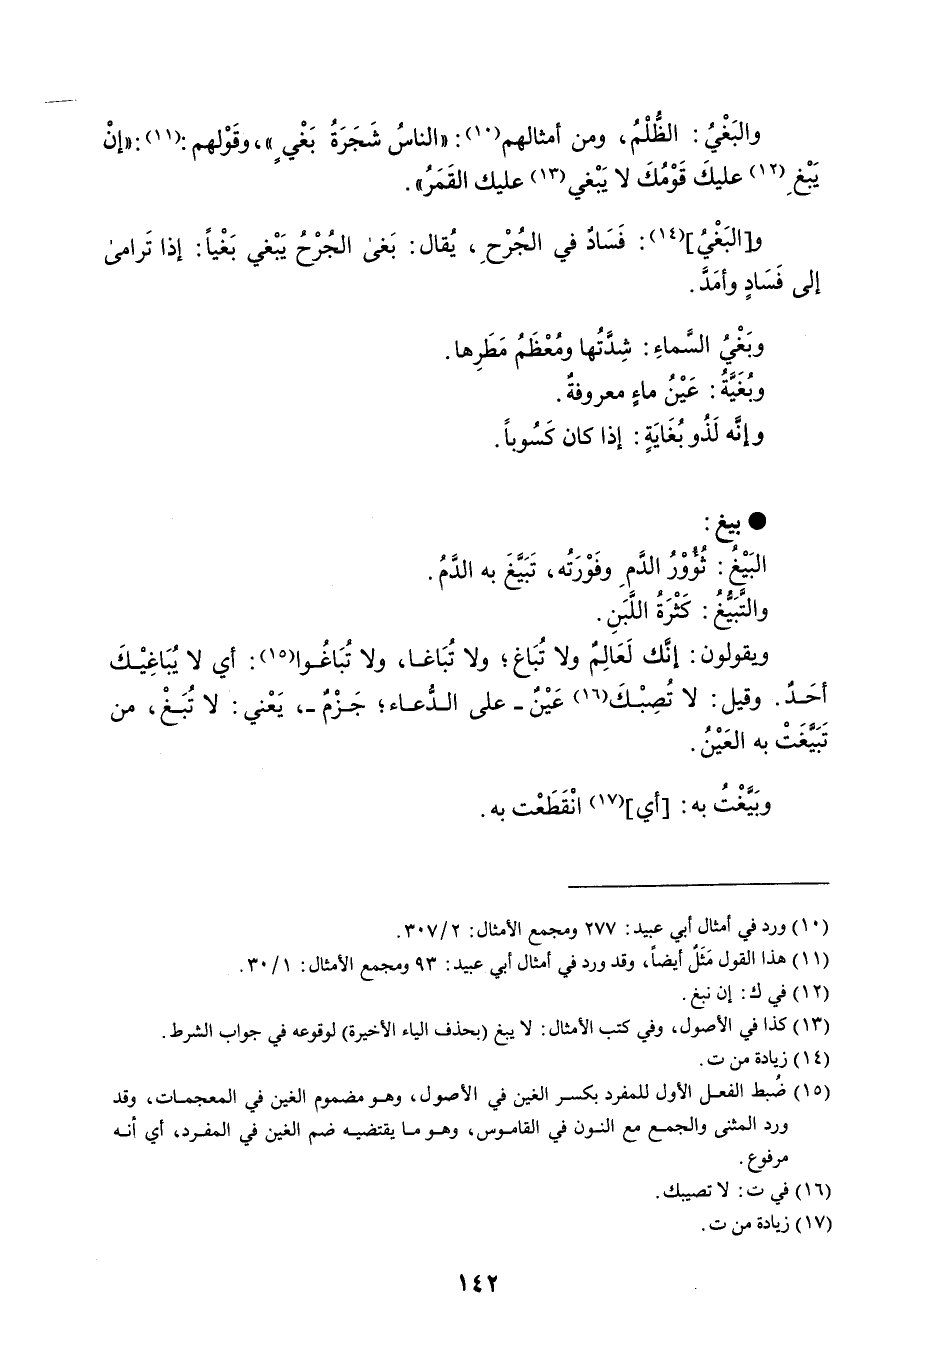 والبَغْيُ: الظُّلْمُ، ومن أمثالهم(١٠): «الناسُ شَجَرَةُ بَغْيٍ»، وقَوْلهم:(١١): «إنْ
يَبْغِ(١٢) عليكَ قَوْمُكَ لا يَبْغي(١٣) عليك القَمَرُ».
و[البَغْيُ](١٤): فَسَادٌ في الجُرْحِ، يُقال: بَغىٰ الجُرْحُ يَبْغي بَغْياً: إذا تَرامىٰ
إلى فَسَادٍ وأمَدَّ.
وبَغْيُ السَّماءِ: شِدَّتُها ومُعْظَمُ مَطَرِها.
وبُغَيَّةُ: عَيْنُ ماءٍ معروفةٌ.
وإنَّه لَذُو بُغَايَةٍ: إذا كان كَسُوباً.
● بيغ:
البَيْغُ: ثُؤُوْرُ الدَّمِ وفَوْرَتُه، تَبَيَّغَ به الدَّمُ.
والتَّبَيُّغُ: كَثْرَةُ اللَّبَنِ.
ويقولون: إنَّك لَعَالِمٌ ولا تُبَاغِ؛ ولا تُبَاغا، ولا تُبَاغُوا(١٥): أي لا يُبَاغِيْكَ
أحَدٌ. وقيل: لا تُصِبْكَ(١٦) عَيْنٌ ـ على الدُّعاء؛ جَزْمٌ ـ، يَعْني: لا تُبَغْ، من
تَبَيَّغَتْ به العَيْنُ.
وبَيَّغْتُ به: [أي](١٧) انْقَطَعْت به.
(١٠) ورد في أمثال أبي عبيد: ٢٧٧ ومجمع الأمثال: ٣٠٧/٢.
(١١) هذا القول مَثَلٌ أيضاً، وقد ورد في أمثال أبي عبيد: ٩٣ ومجمع الأمثال: ٣٠/١.
(١٢) في ك: إن نبغ.
(١٣) كذا في الأصول، وفي كتب الأمثال: لا يبغ (بحذف الياء الأخيرة) لوقوعه في جواب الشرط.
(١٤) زيادة من ت.
(١٥) ضُبط الفعل الأول للمفرد بكسر الغين في الأصول، وهو مضموم الغين في المعجمات، وقد
ورد المثنى والجمع مع النون في القاموس، وهو ما يقتضيه ضم الغين في المفرد، أي أنه
مرفوع.
(١٦) في ت: لا تصيبك.
(١٧) زيادة من ت.
١٤٢